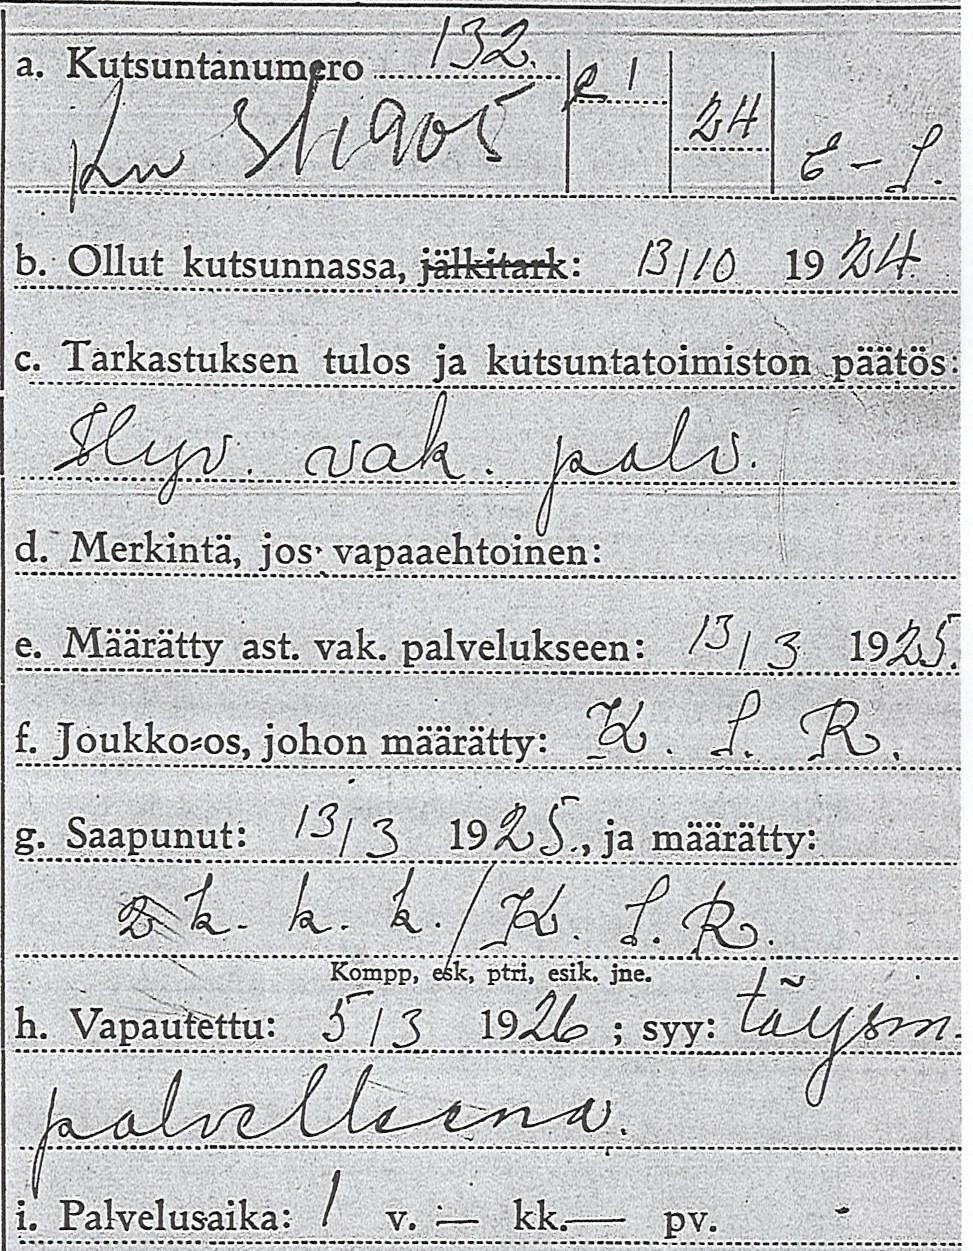 a. Kutsuntanumero 132.
24 E – L.
b. Ollut kutsunnassa, jälkitark: 13/10 1924.
c. Tarkastuksen tulos ja kutsuntatoimiston päätös:
Hyv. vak. palv.
d. Merkintä, jos vapaaehtoinen:
e. Määrätty ast. vak. palvelukseen: 13/3 1925.
f. Joukko-os, johon määrätty: K. S. R.
g. Saapunut: 13/3 1925., ja määrätty:
2 k. k. k./K. S. R.
Kompp, esk, ptri, esik. jne.
h. Vapautettu: 5/3 1926 ; syy: täysin
palvelleena.
i. Palvelusaika: 1 v. — kk. — pv.